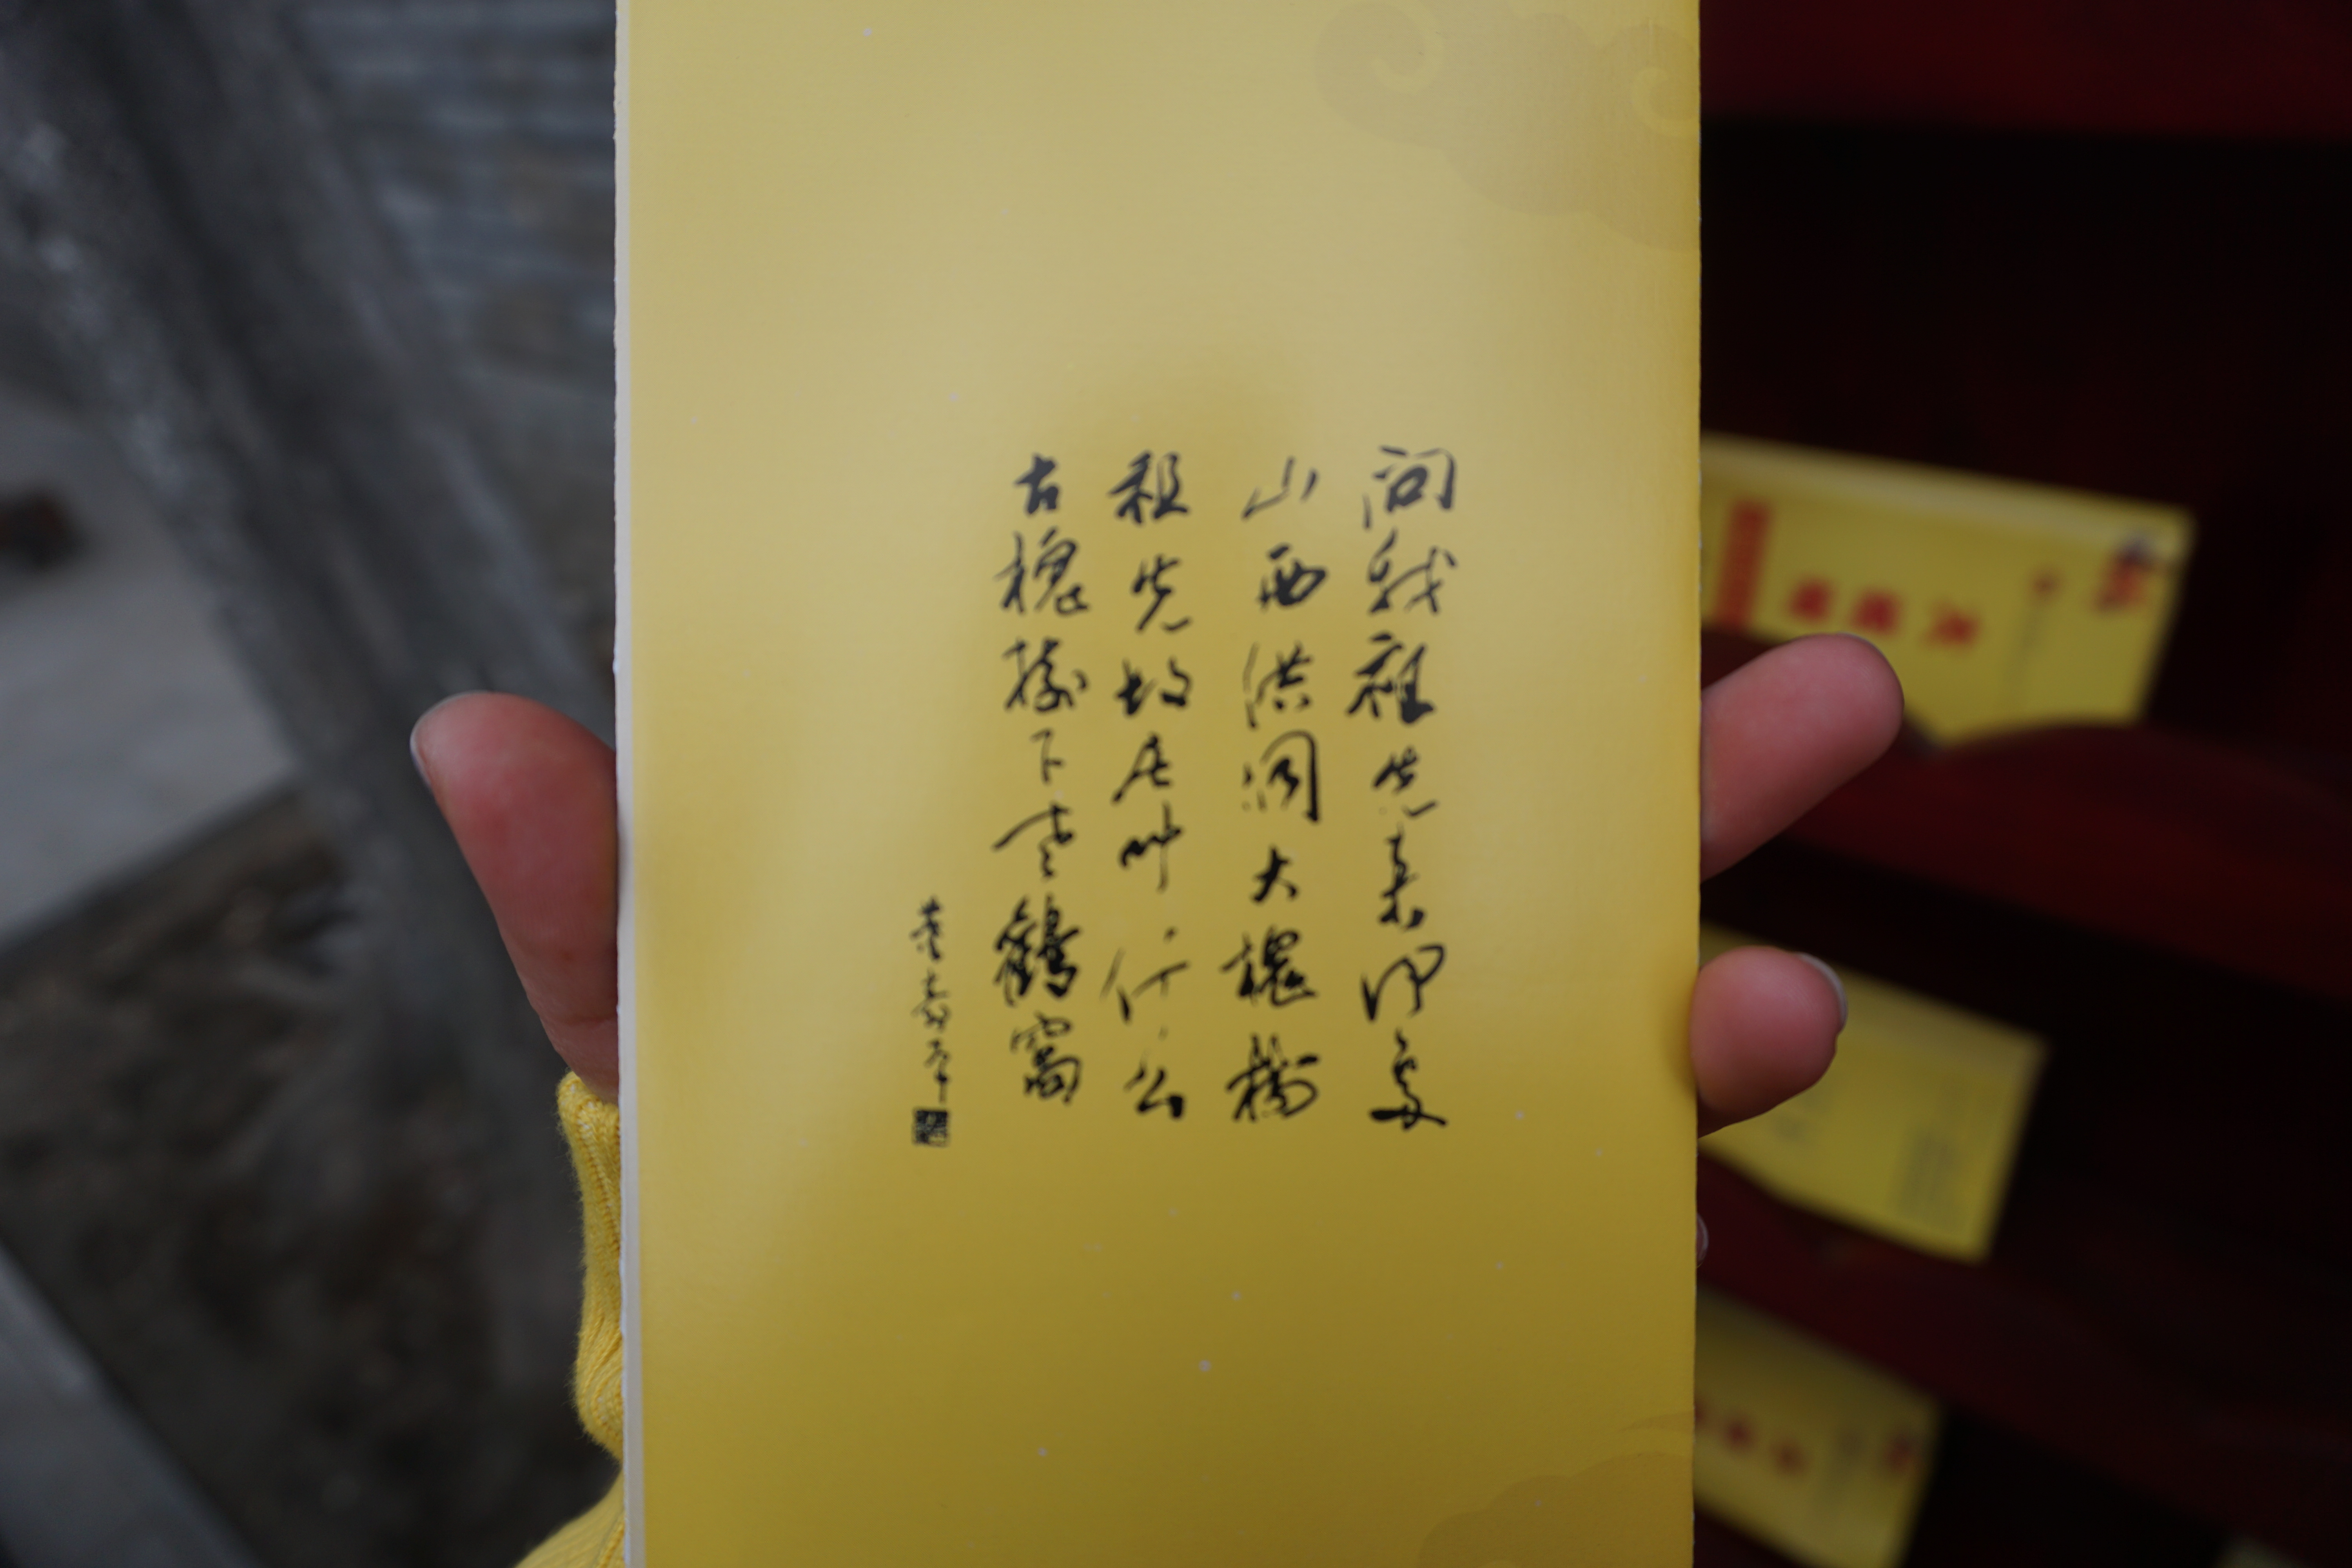 问我祖先来何處
山西洪洞大槐樹
祖先故居叫什么
古槐樹下老鸛窩
董壽平